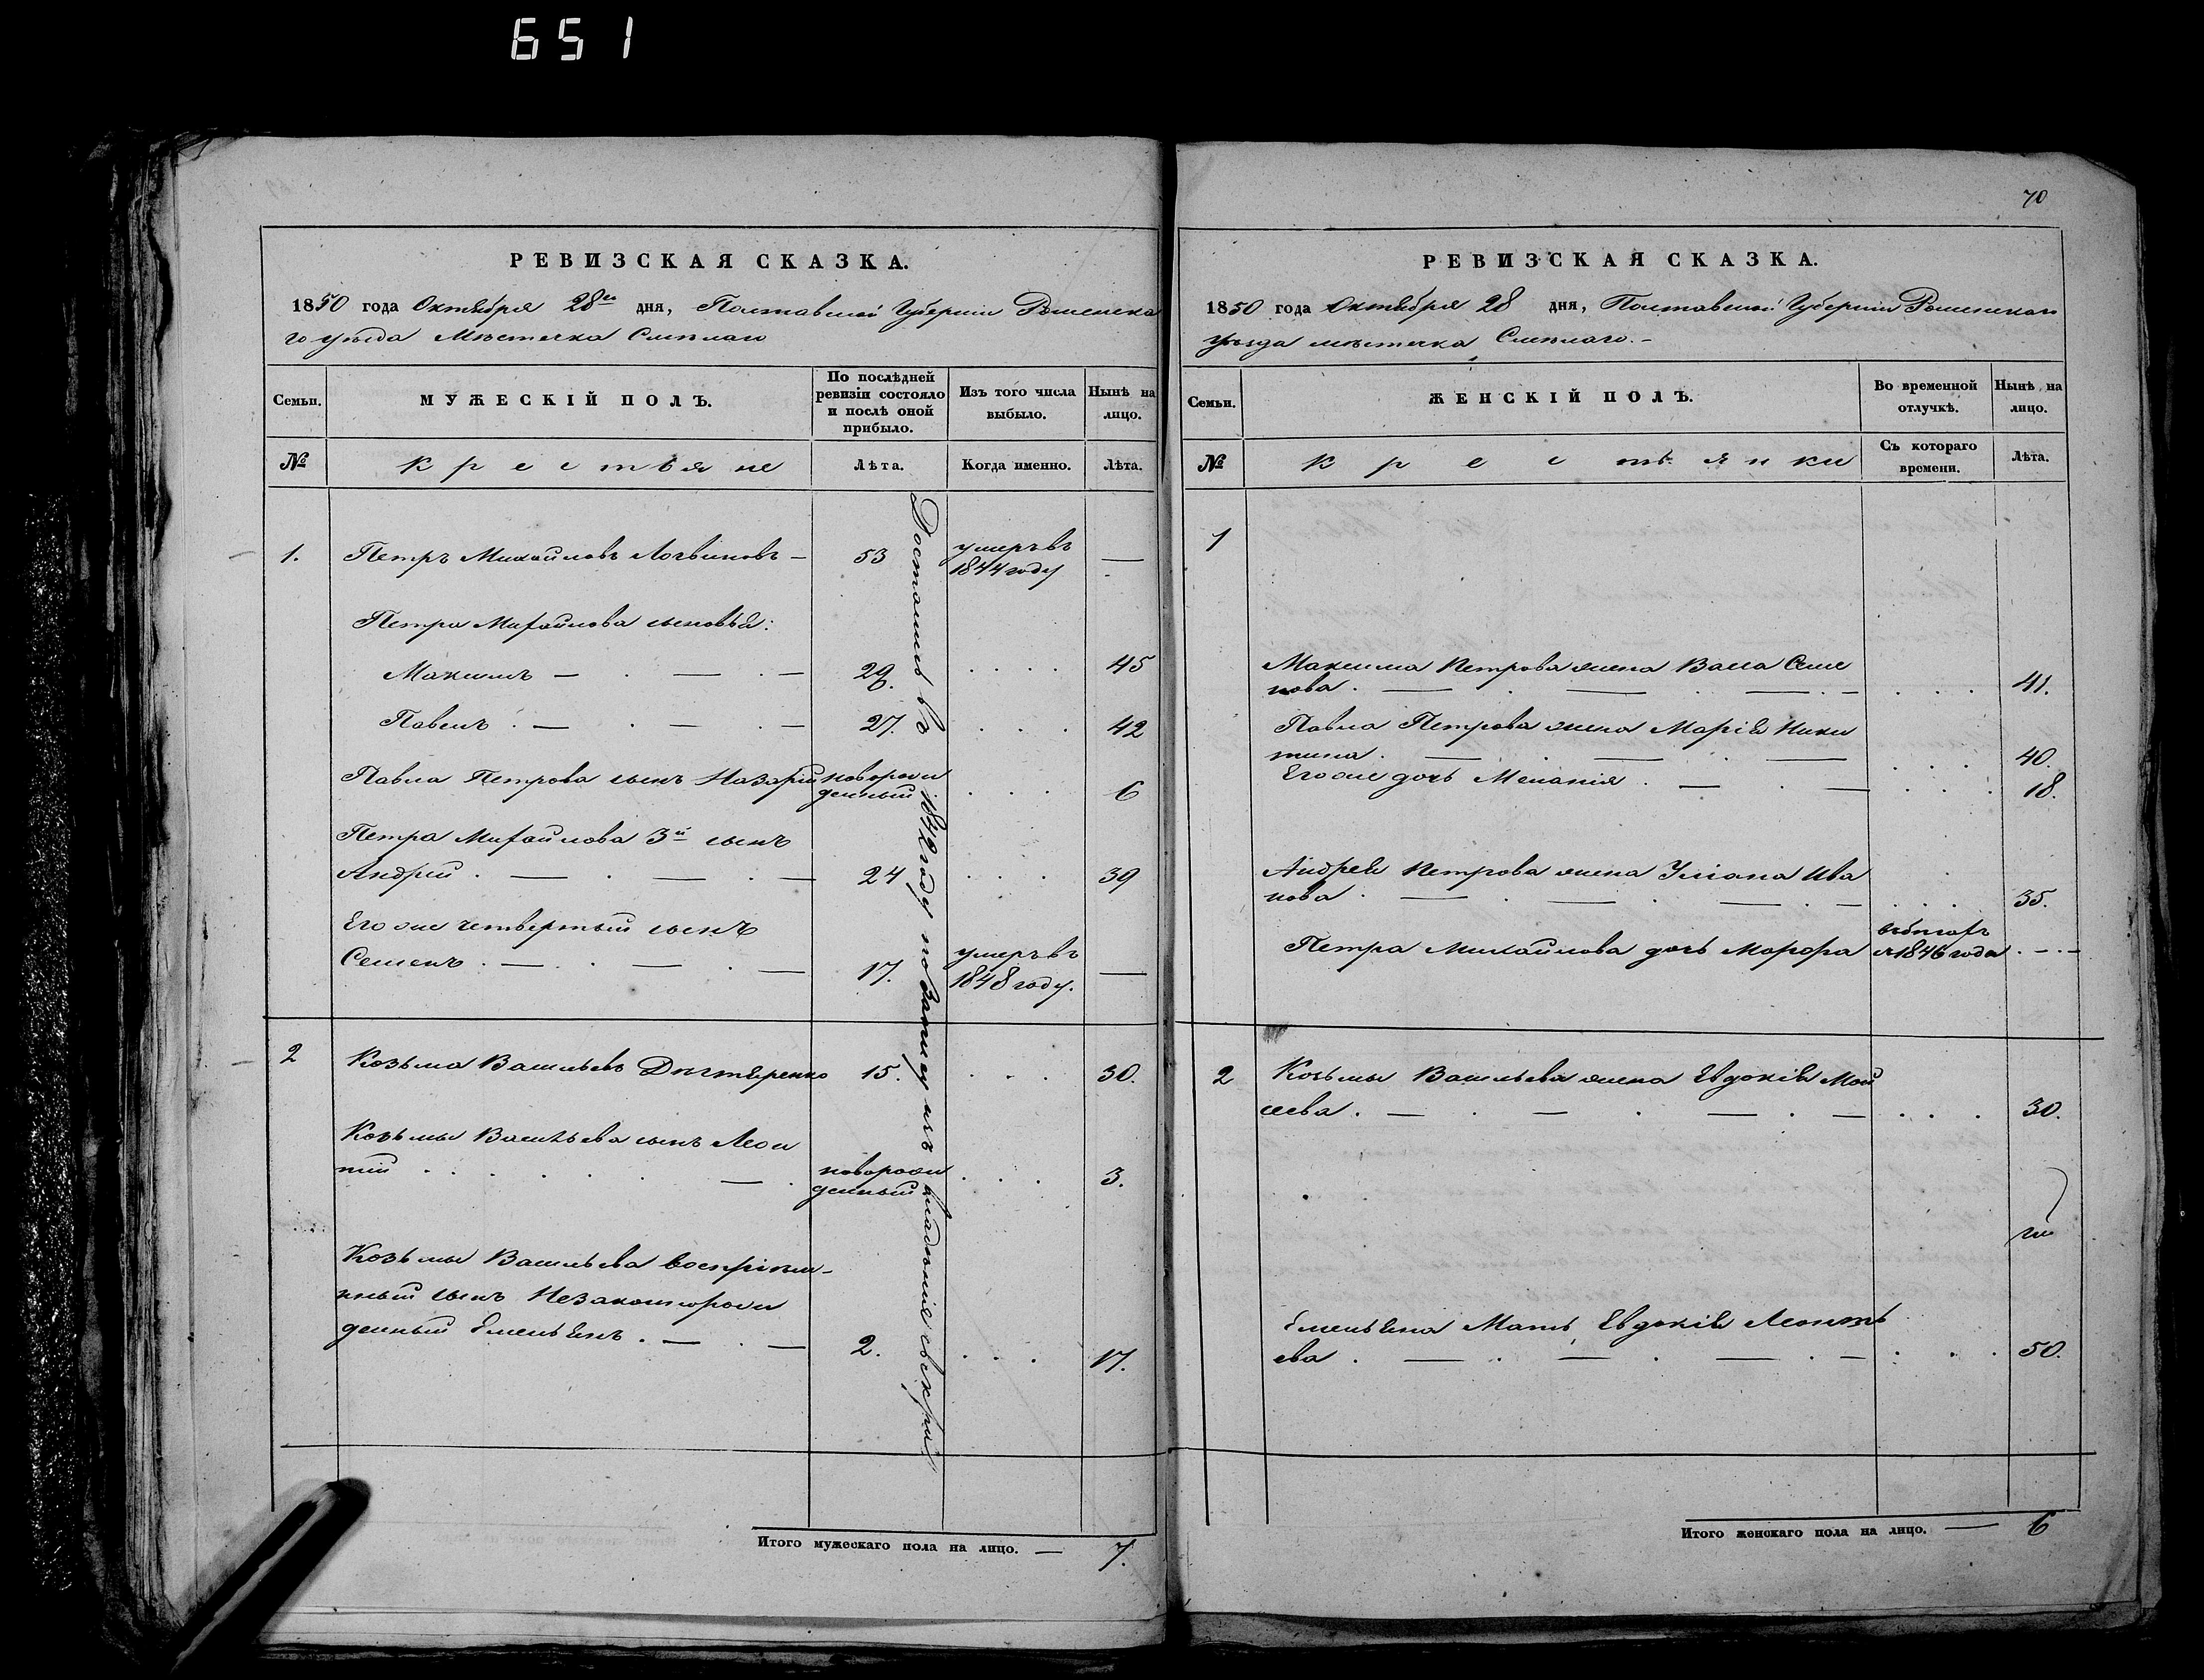 651
РЕВИЗСКАЯ СКАЗКА.
1850 года Октября 28го дня, Полтавской Губернии Роменска
го уѣзда Мѣстечка Смѣлаго
Семьи. МУЖЕСКІЙ ПОЛЪ. По послѣдней ревизіи состояло и послѣ оной прибыло. Изъ того числа выбыло. Нынѣ на лицо.
№ Крестьяне Лѣта. Когда именно. Лѣта.
1. Петръ Михайловъ Логвиновъ — 53 умеръ въ 1844 году —
Петра Михайлова сыновья:
Максимъ — 29. 45
Павелъ — 27. 42
Павла Петрова сынъ Назарій новорож денный 6
Петра Михайлова 3й сынъ
Андрій 24 39
Его же четвертый сынъ
Семенъ 17. умеръ въ 1848 году. —
2 Козьма Васильевъ 15. 30.
Козьмы Васильева сынъ Леон
тій новорож денный 3.
Козьмы Васильева воспріим-
ный сынъ Незаконнорож
денный Емельянъ 2. 17.
Достались въ 1842 году по
Итого мужескаго пола на лицо. — 7.
70
РЕВИЗСКАЯ СКАЗКА.
1850 года Октября 28 дня, Полтавской Губерніи Роменскаго
уѣзда мѣстечка Смѣлаго.-
Семьи. ЖЕНСКІЙ ПОЛЪ. Во временной отлучкѣ. Нынѣ на лицо.
№ Крестьянки Съ котораго времени. Лѣта.
1
Максима Петрова жена Васса Семе
нова 41.
Павла Петрова жена Марія Ники
тина 40.
Его же дочь Меланія 18.
Андрея Петрова жена Уліана Ива
нова 35.
Петра Михайлова дочь въ бѣгахъ съ 1846 года
2 Козьмы Васильева жена Евдокія Мои
сеева 30.
Емельяна Мать Евдокія Леонть
ева 50.
Итого женскаго пола на лицо. — 6